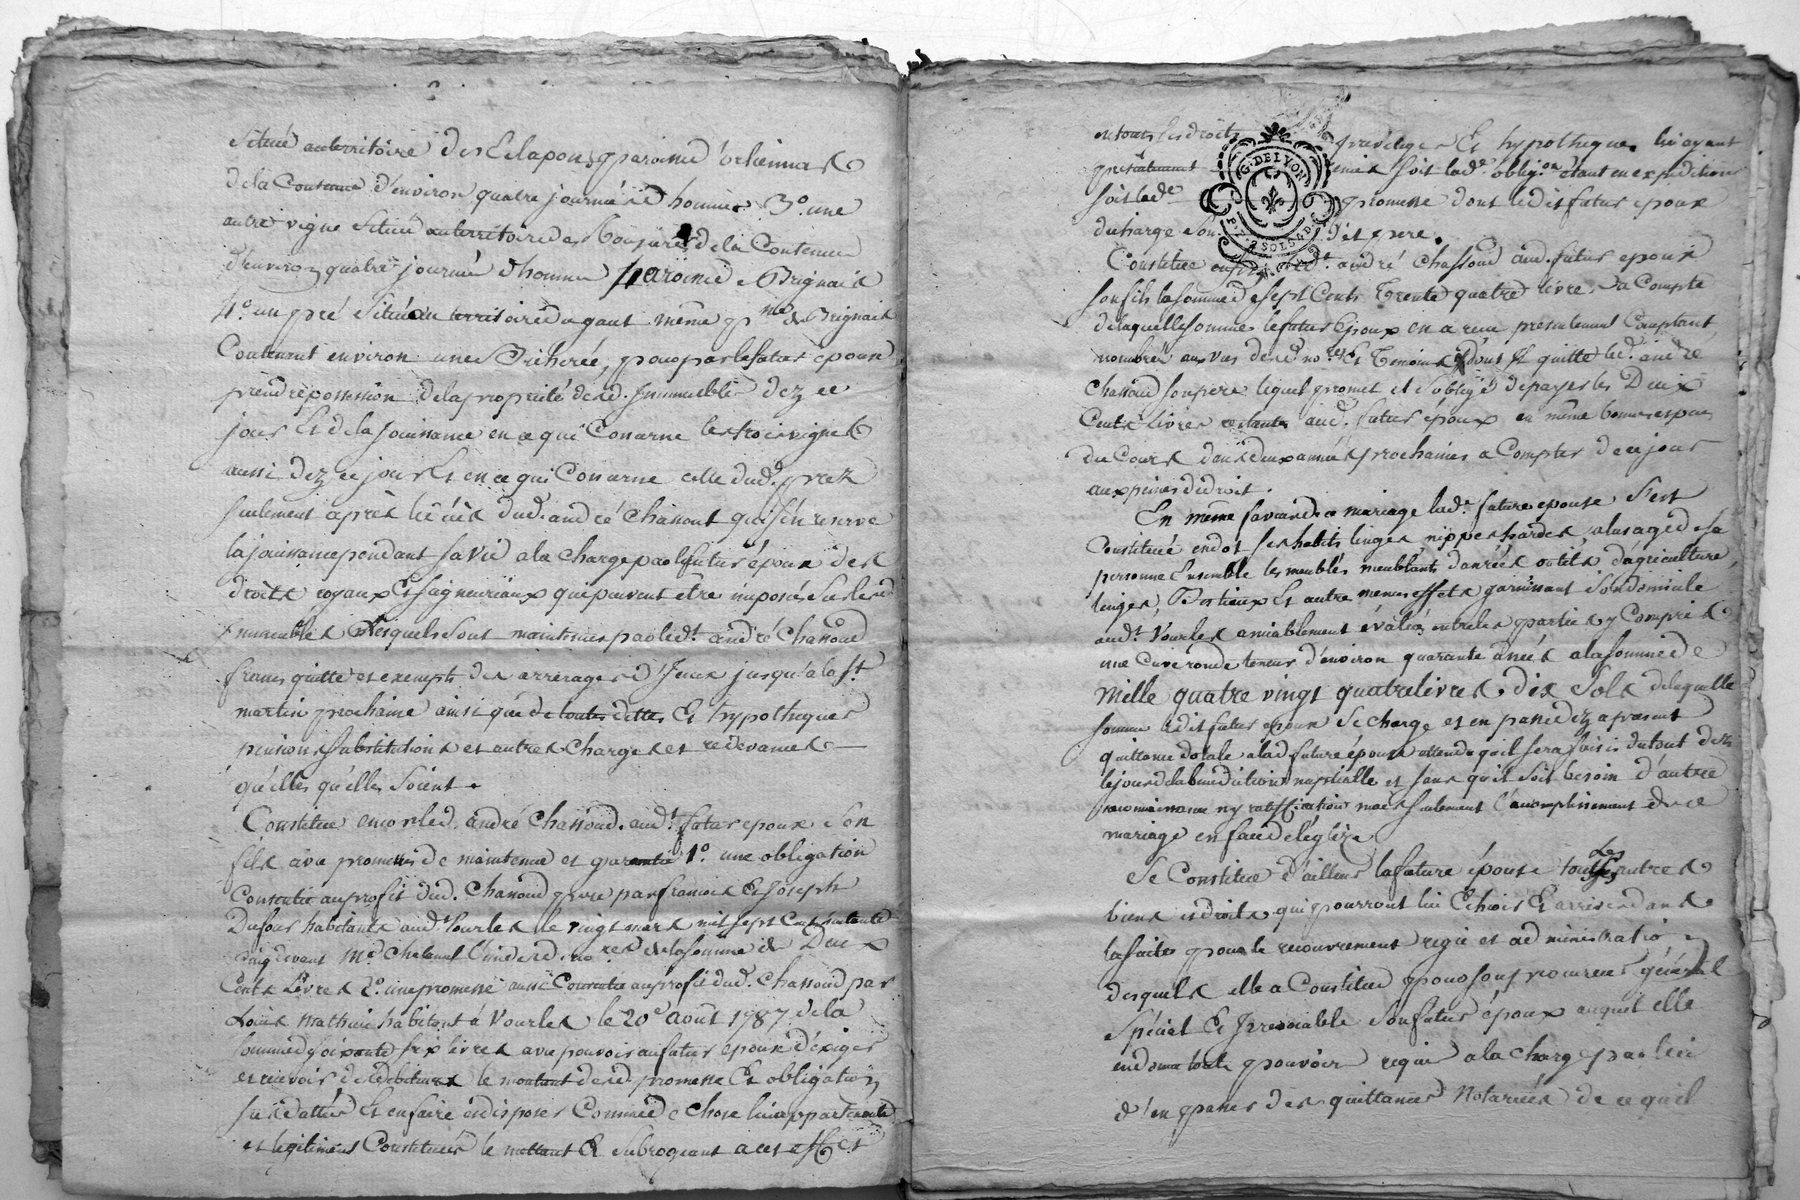 Situé au territoire des Eclapons, paroisse d'orlienna &
de la Contenue d'environ quatre journées d'hommes 3.° une
autre vigne Située au territoire des de la Contenue
d'environ quatre journées d'hommes paroisse de Brignais
4.° un pré Situé au territoire du gaut même p.sse de Brignais
Contenant environ une Bicherée, pour par le futur époux
prendre possession de la propriété desd. Immeubles dez ce
jour Et de la Jouissance en ce qui Concerne les trois vignes
aussi dez ce jour Et en ce qui Concerne celle dud. prez
seulement après le décès dud. andré Chassoud qui s'en reserve
la jouissance pendant sa vie a la charge par le futur époux des
droits royaux Et seigneuriaux qui peuvent être imposés sur lesd
Immeubles Lesquels sont maintenus par led.t andré Chassoud
francs quitte et exempts des arrérages d'Iceux jusqu'a la S.t
martin prochaine ainsi que de toutes dettes Et hypotheques
pensions substitutions et autres charges et redevances
qu'elles qu'elles soient.
Constitue encor led. andré Chassoud. aud.t futur epoux son
fils avec promesses de maintenue et garantie 1.° une obligation
Consentie au profit dud. Chassoud pere par francois Et Joseph
Dufour habitants aud.t Vourles le vingt mars mil sept Cent
cinq devant M.e l'un desd. no.res de la somme de Deux
Cents Livres 2.° une promesse aussi Consentie au profit dud. Chassoud par
Louis mathieu habitant à Vourles le 20.e août 1787 de la
somme de soixante six livres avec pouvoir au futur epoux d'exiger
et recevoir desd. debiteurs le montant desd. promesse Et obligation
sus dattées Et en faire et disposer Comme de chose lui appartenante
et legitiment Constituée le mettant & subrogeant a cet effet
en tous les droits privileges Et hypotheques lui ayant
présentement remis soit lad.e oblig.on étant en expedition
soit lad.e promesse dont led. futur epoux
décharge son d.t pere.
G. DE LYON
2 SOLS 4 D
Constitue aussi led.t andré Chassoud aud. futur epoux
son fils la somme de sept Cents trente quatre livres a Compte
de laquelle somme le futur Epoux en a recu presentement Comptant
nombré au vus desd. no.res Et Temoins dont Il quitte led. andré
Chassoud son pere lequel promet et s'oblige de payer les Deux
Cents Livres restantes aud. futur epoux en même bonnes especes
du Cours dans deux années prochaines a Compter de ce jour
aux peines de droit.
En même faveur de ce mariage lad.e future epouse s'est
Constituée en dot ses habits linges nippes hardes a l'usage de sa
personne Ensemble les meubles meublants danrées outils d'agriculture
linges, Bestiaux Et autre menus effets garnissant son domicile
aud.t Vourles amiablement évalués entre les parties y Compris
une Cuve ronde teneur d'environ quarante anées a la somme de
Mille quatre vingt quatre livres dix Sols de laquelle
somme led. futur epoux se charge et en passe dez a present
quittance dotale a lad future épouse attendu qu'il sera saisi du tout dez
le jour de la benediction nuptialle et sans qu'il soit besoin d'autre
reconnaissance ny ratiffication mais seulement l'accomplissement de ce
mariage en face de l'église.
Se Constitue d'ailleurs la future épouse tous Les autres
biens et droits qui pourront lui Echoir Et arriver dans
la suite pour le recouvrement regie et administration
desquels elle a Constitué pour son procureur général
spécial Et Irrevocable son futur époux auquel elle
en donne tout pouvoir requis a la charge par lui
d'en passer des quittances Notariées de ce qu'il